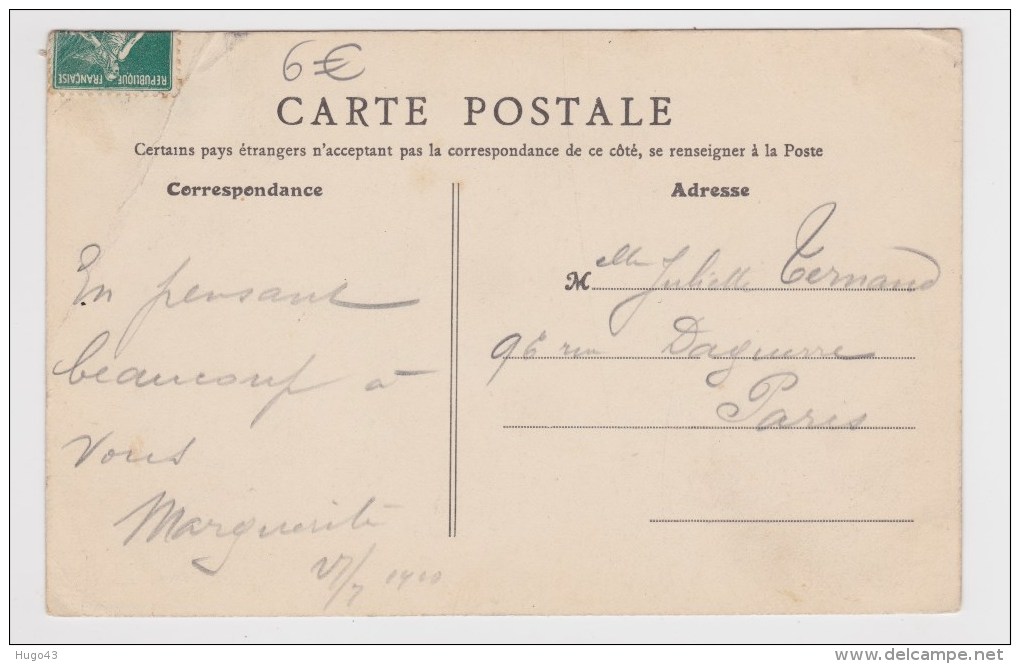 RÉPUBLIQUE FRANÇAISE
6€
CARTE POSTALE
Certains pays étrangers n'acceptant pas la correspondance de ce côté, se renseigner à la Poste
Correspondance
En pensant
beaucoup à
vous
Marguerite
1910
Adresse
Melle Juliette Ternaud
96 rue Daguerre
Paris
Hugo43
www.delcampe.net